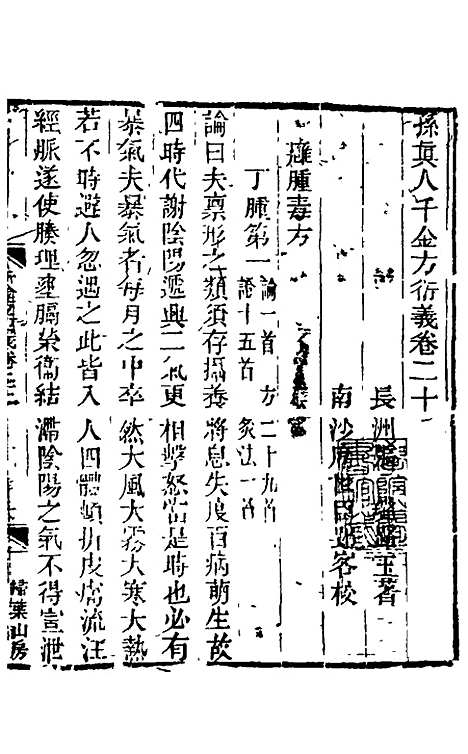 孫真人千金方衍義卷二十
長洲 玉著
南沙 校
癰腫毒方
丁腫第一 論一首 方二十九首
證十五首 灸法一首
論曰夫禀形之類須存攝養將息失度百病萌生故
四時代謝陰陽遞興二氣更相擊怒當是時也必有
暴氣夫暴氣者每月之中卒然大風大霧大寒大熱
若不時避人忽遇之此皆入人四體頓折皮膚流注
經脈遂使腠理壅膈榮衛結滯陰陽之氣不得宣泄
掃葉山房